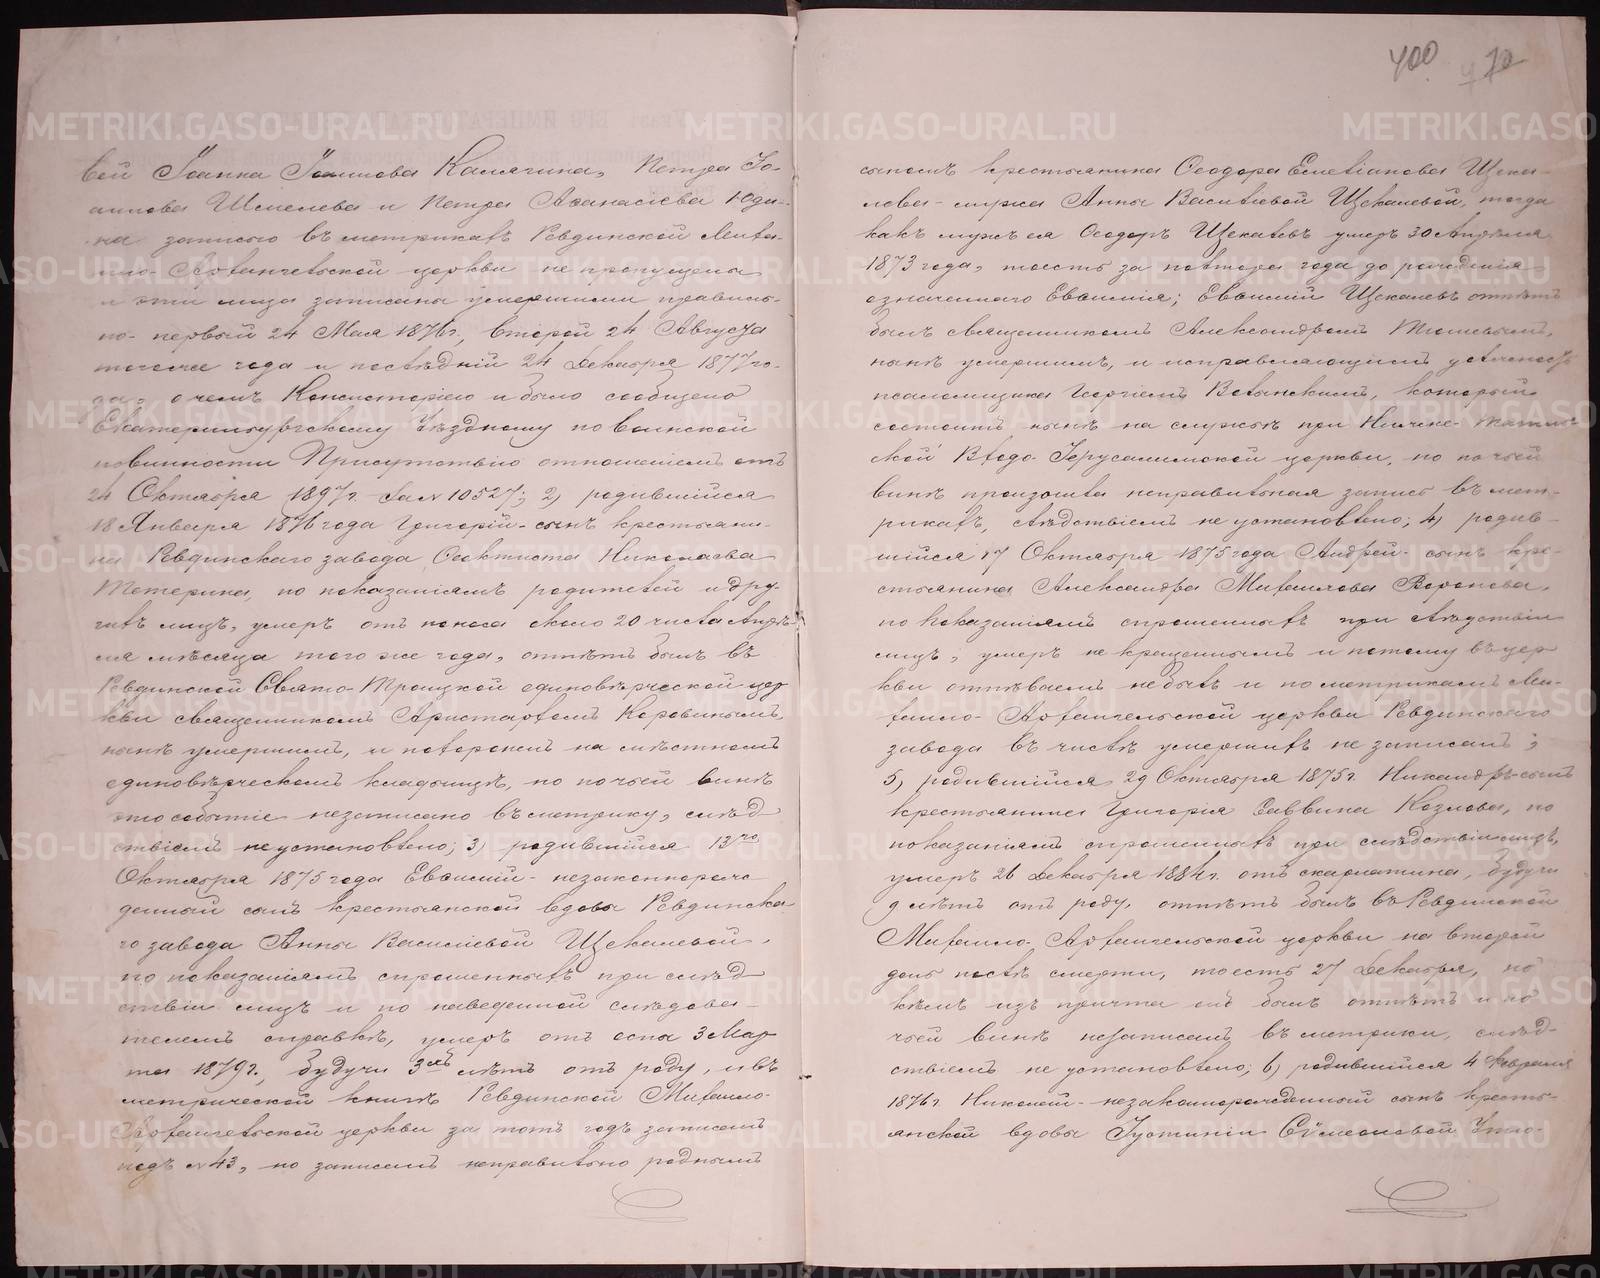 400 70
вей Іоанна Іоаннова Калягина, Петра Іо-
аннова Шмелева и Петра Аѳанасіева Юди-
на записью въ метрикахъ Ревдинской Миха-
ило-Архангельской церкви не пропущены
и эти лица записаны умершими правиль-
но- первый 24 Мая 1876 г., второй 24 Августа
того же года и послѣдній 24 Декабря 1877 го-
да, о чемъ Консисторіею и было сообщено
Екатеринбургскому Уѣздному по воинской
повинности Присутствію отношеніемъ отъ
24 Октября 1897 г. за № 10527; 2) родившійся
18 Января 1876 года Григорій- сынъ крестьяни-
на Ревдинскаго завода Ѳеоктиста Николаева
Тетерина, по показаніямъ родителей и дру-
гихъ лицъ, умеръ отъ поноса около 20 числа Апрѣ-
ля мѣсяца того же года, отпѣтъ былъ въ
Ревдинской Свято-Троицкой единовѣрческой цер-
кви священникомъ Аристархомъ Коровинымъ,
нынѣ умершимъ, и похороненъ на мѣстномъ
единовѣрческомъ кладбищѣ, но по чьей винѣ
это событіе не записано въ метрику, слѣд-
ствіемъ не установлено; 3) родившійся 13го
Октября 1875 года Евѳимій- незаконнорож-
денный сынъ крестьянской вдовы Ревдинска-
го завода Анны Василіевой Щекалевой,
по показаніямъ спрошенныхъ при слѣд-
ствіи лицъ и по наведенной слѣдова-
телемъ справкѣ, умеръ отъ оспы 3 Мар-
та 1879 г., будучи 3хъ лѣтъ отъ роду, и въ
метрической книгѣ Ревдинской Михаило-
Архангельской церкви за тотъ годъ записанъ
подъ № 43, но записанъ неправильно роднымъ
сыномъ крестьянина Ѳеодора Емельянова Щека-
лева- мужа Анны Васильевой Щекалевой, тогда
какъ мужъ ея Ѳеодоръ Щекалевъ умеръ 30 Апрѣля
1873 года, то есть за полтора года до рожденія
означеннаго Евѳимія; Евѳимій Щекалевъ отпѣтъ
былъ священникомъ Александромъ
нынѣ умершимъ, и исправляющимъ должность
псаломщика Георгіемъ который
состоитъ нынѣ на службѣ при Нижне-Тагиль-
ской Входо-Іерусалимской церкви, но по чьей
винѣ произошла неправильная запись въ мет-
рикахъ, слѣдствіемъ не установлено; 4) родив-
шійся 17 Октября 1875 года Андрей- сынъ кре-
стьянина Александра Михаилова Воронова,
по показаніямъ спрошенныхъ при слѣдствіи
лицъ, умеръ не крещеннымъ и потому въ цер-
кви отпѣваемъ не былъ и по метрикамъ Ми-
хаило-Архангельской церкви Ревдинскаго
завода въ числѣ умершихъ не записанъ;
5) родившійся 29 Октября 1875 г. Никандръ- сынъ
крестьянина Григорія Саввина Козлова, по
показаніямъ спрошенныхъ при слѣдствіи лицъ,
умеръ 26 Декабря 1884 г. отъ скарлатины, будучи
9 лѣтъ отъ роду, отпѣтъ былъ въ Ревдинской
Михаило-Архангельской церкви на второй
день послѣ смерти, то есть 27 Декабря, но
кѣмъ изъ причта онъ былъ отпѣтъ и по
чьей винѣ незаписанъ въ метрики, слѣд-
ствіемъ не установлено; 6) родившійся 4 Февраля
1876 г. Николай- незаконнорожденный сынъ кресть-
янской вдовы Іустиніи Сѵмеоновой